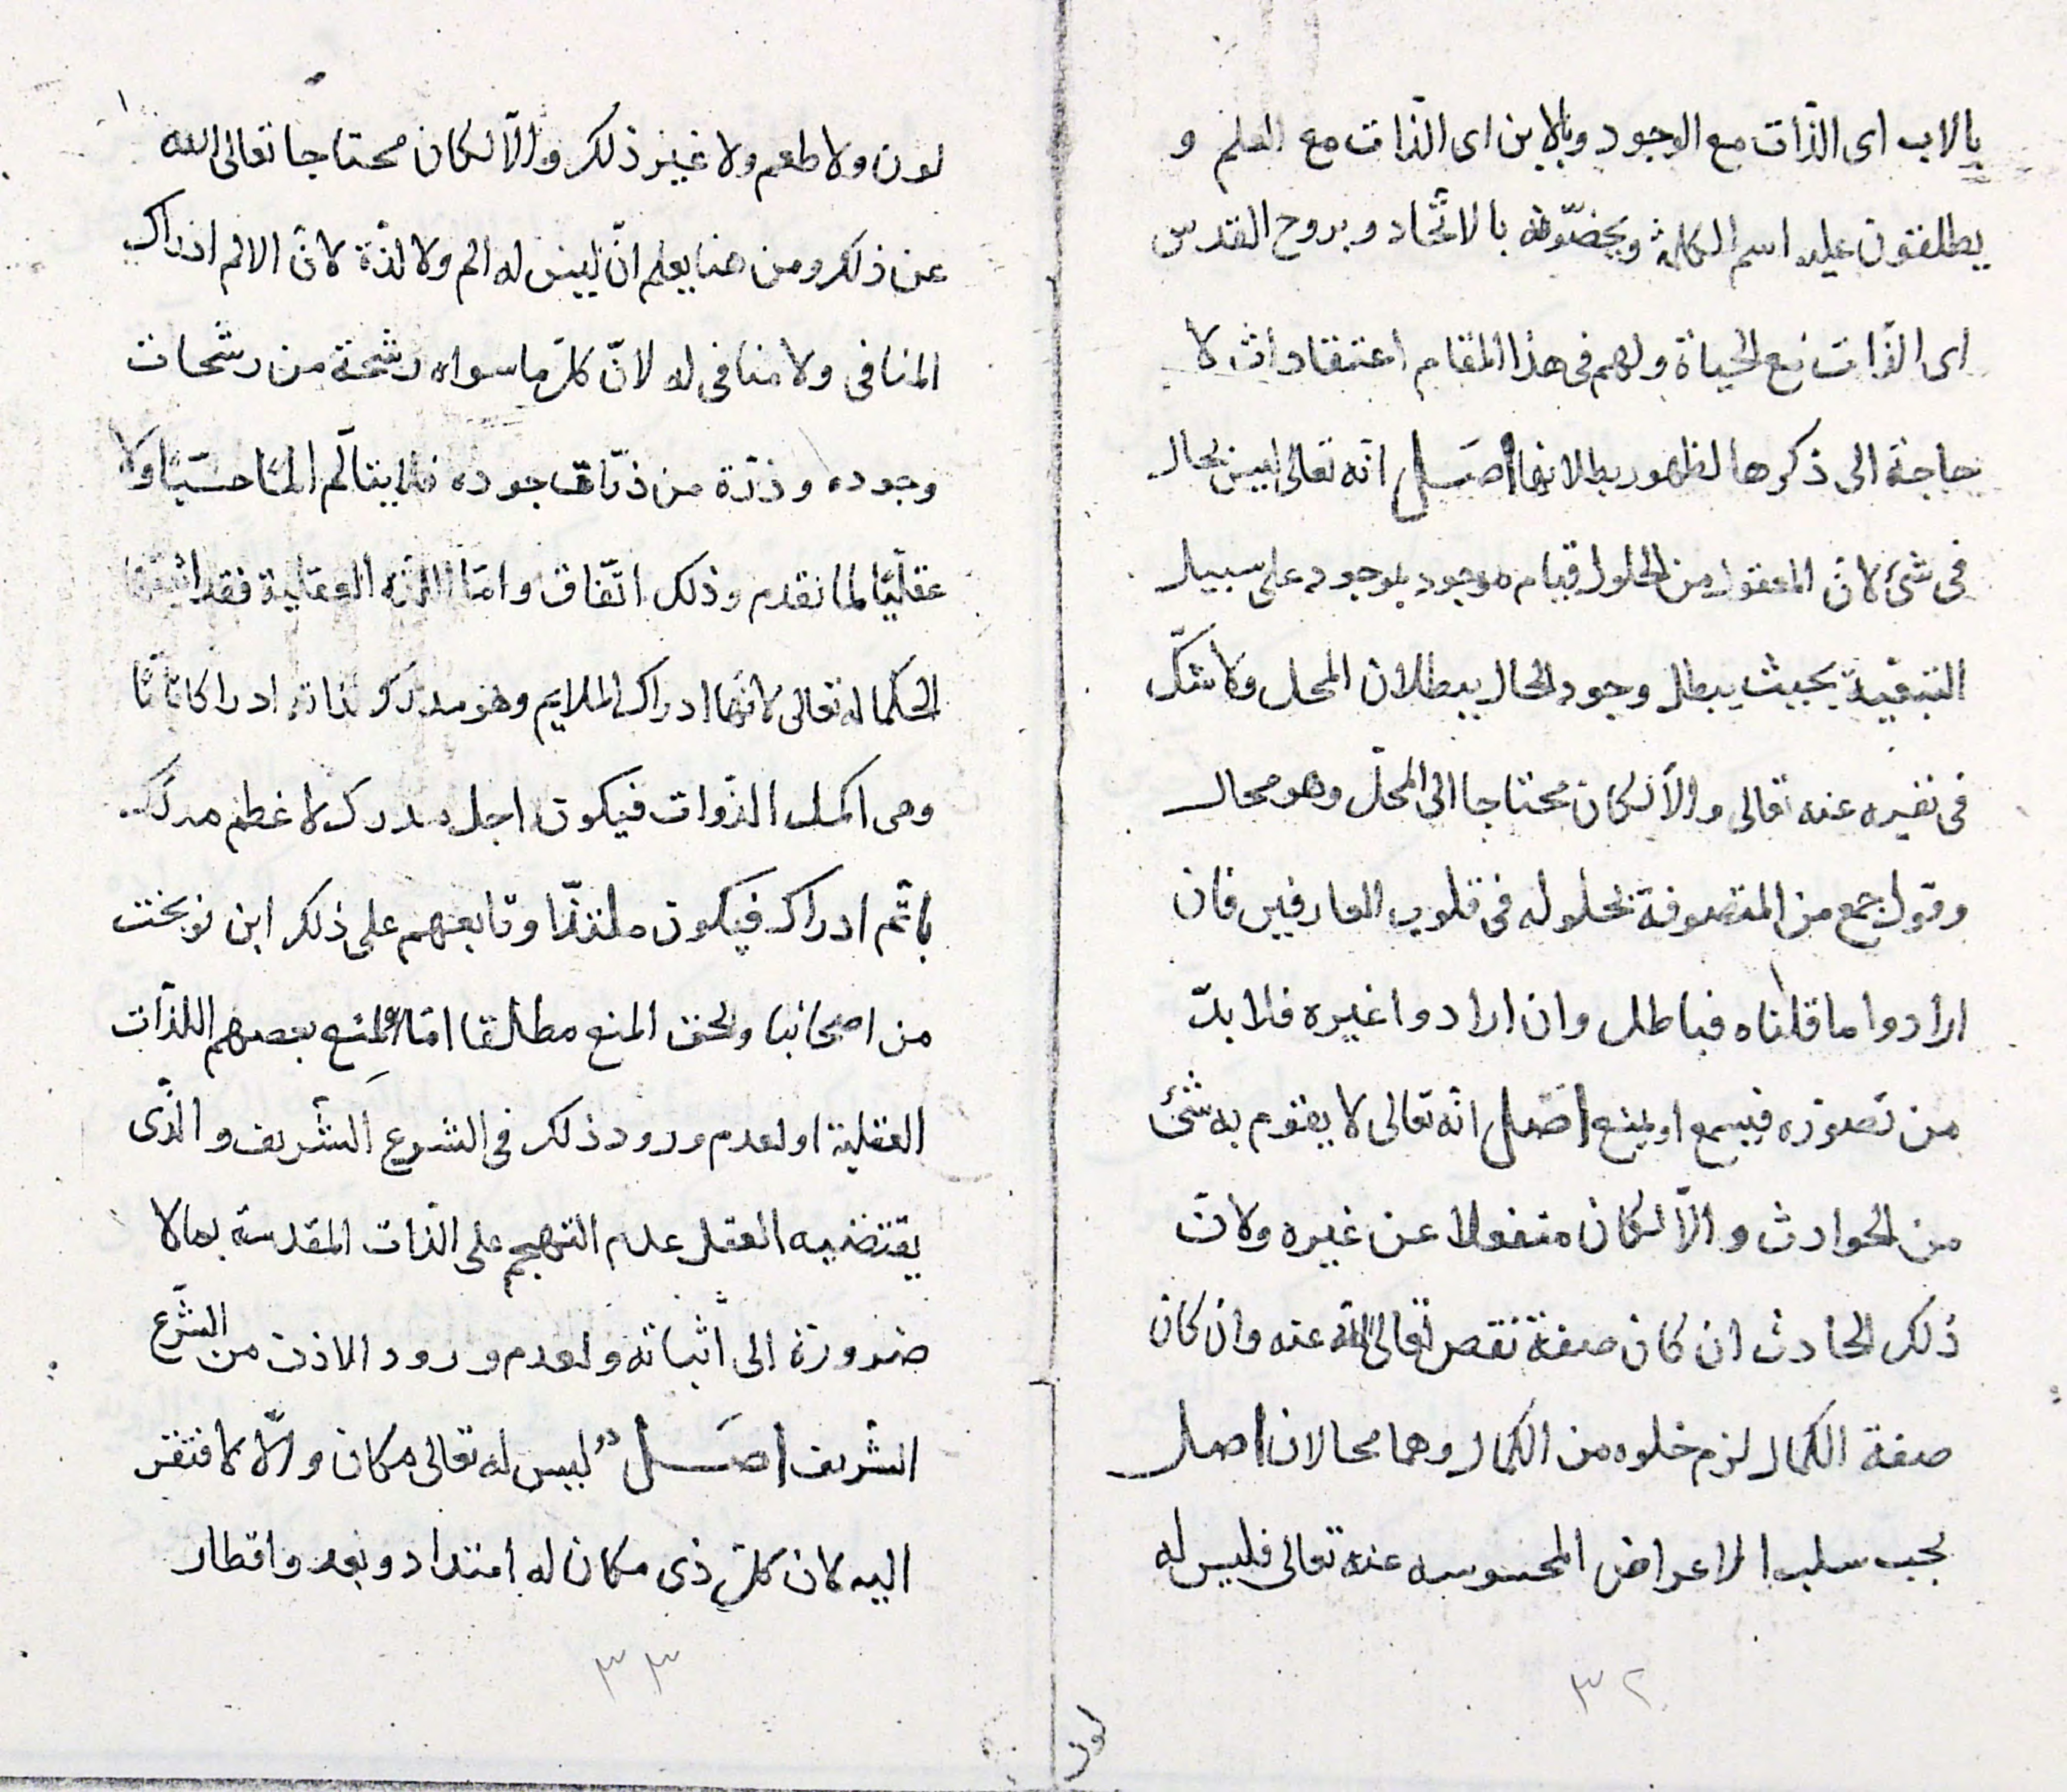 بالاب اى الذّات مع الوجود وبالابن اى الذّات مع العلم و
يطلقون عليه اسم الكلمة ويخصّونه بالاتّحاد وبروح القدس
اى الذّات مع الحياة ولهم فى هذا المقام اعتقادات لا
حاجة الى ذكرها لظهور بطلانها اصل انّه تعالى ليس بحال
فى شئ لانّ المعقول من الحلول قيام موجود بموجود على سبيل
التبعيّة بحيث يبطل وجود الحال ببطلان المحل ولا شكّ
فى نفيه عنه تعالى والّا لكان محتاجا الى المحلّ وهو محال
وقول جمع من المتصوفة بحلوله فى قلوب العارفين فان
ارادوا ما قلناه فباطل وان ارادوا غيره فلا بدّ
من تصوّره فيسمع او يمنع اصل انّه تعالى لا يقوم به شئ
من الحوادث والّا لكان منفعلا عن غيره ولانّ
ذلك الحادث ان كان صفة نقص تعالى الله عنه وان كان
صفة الكمال لزم خلوه من الكمال وهما محالان اصل
يجب سلب الاعراض المحسوسه عنه تعالى فليس له
٣٢
لون
لون ولا طعم ولا غير ذلك والّا لكان محتاجا تعالى الله
عن ذلك ومن هنا يعلم انّ ليس له الم ولا لذّة لانّ الالم ادراك
المنافى ولا منافى له لانّ كلّ ما سواه رشحة من رشحات
وجوده وذرّة من ذرّات جوده فلا يتألّم المًا حسيّا ولا
عقليّا لما تقدم وذلك اتّفاق وامّا اللذّه العقلية فقد اثبتها
الحكما له تعالى لانّها ادراك الملايم وهو مدرك لذاته ادراكا تامّا
وهى اكمل الذّوات فيكون اجل مدرك لاعظم مدرك
باتّم ادراك فيكون ملتذّا وتابعهم على ذلك ابن نوبخت
من اصحابنا والحق المنع مطلقا امّا لمنع بعضهم اللذّات
العقلية او لعدم ورود ذلك فى الشرع الشّريف والّذى
يقتضيه العقل عدم التهجم على الذّات المقدسة بما لا
ضرورة الى اثباته ولعدم ورود الاذن من الشّرع
الشّريف اصل ليس له تعالى مكان والّا لافتقر
اليه لان كلّ ذى مكان له امتداد وبعد واقطار
٣٣